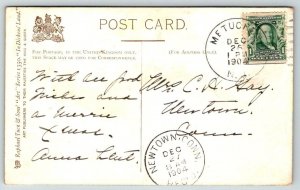 POST CARD.
FOR POSTAGE, IN THE UNITED KINGDOM ONLY, THIS SPACE MAY BE USED FOR CORRESPONDENCE.
(FOR ADDRESS ONLY.)
METUCHEN
DEC
25
1 PM
1904
N.J.
With all good
Wishes and
a Merrie
Xmas.
Anna
Mrs C. H. Hay,
Newtown,
Conn.
NEWTOWN, CONN.
DEC
27
8 AM
1904
REC'D
Raphael Tuck & Sons' "Art" Series 1330.